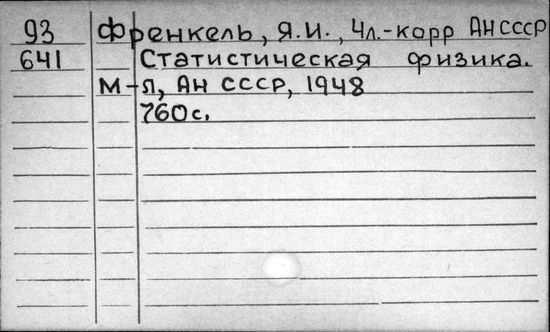 93 Френкель, Я.И., Чл.-корр АН СССР
641 Статистическая физика.
М-Л, АН СССР, 1948
760с.